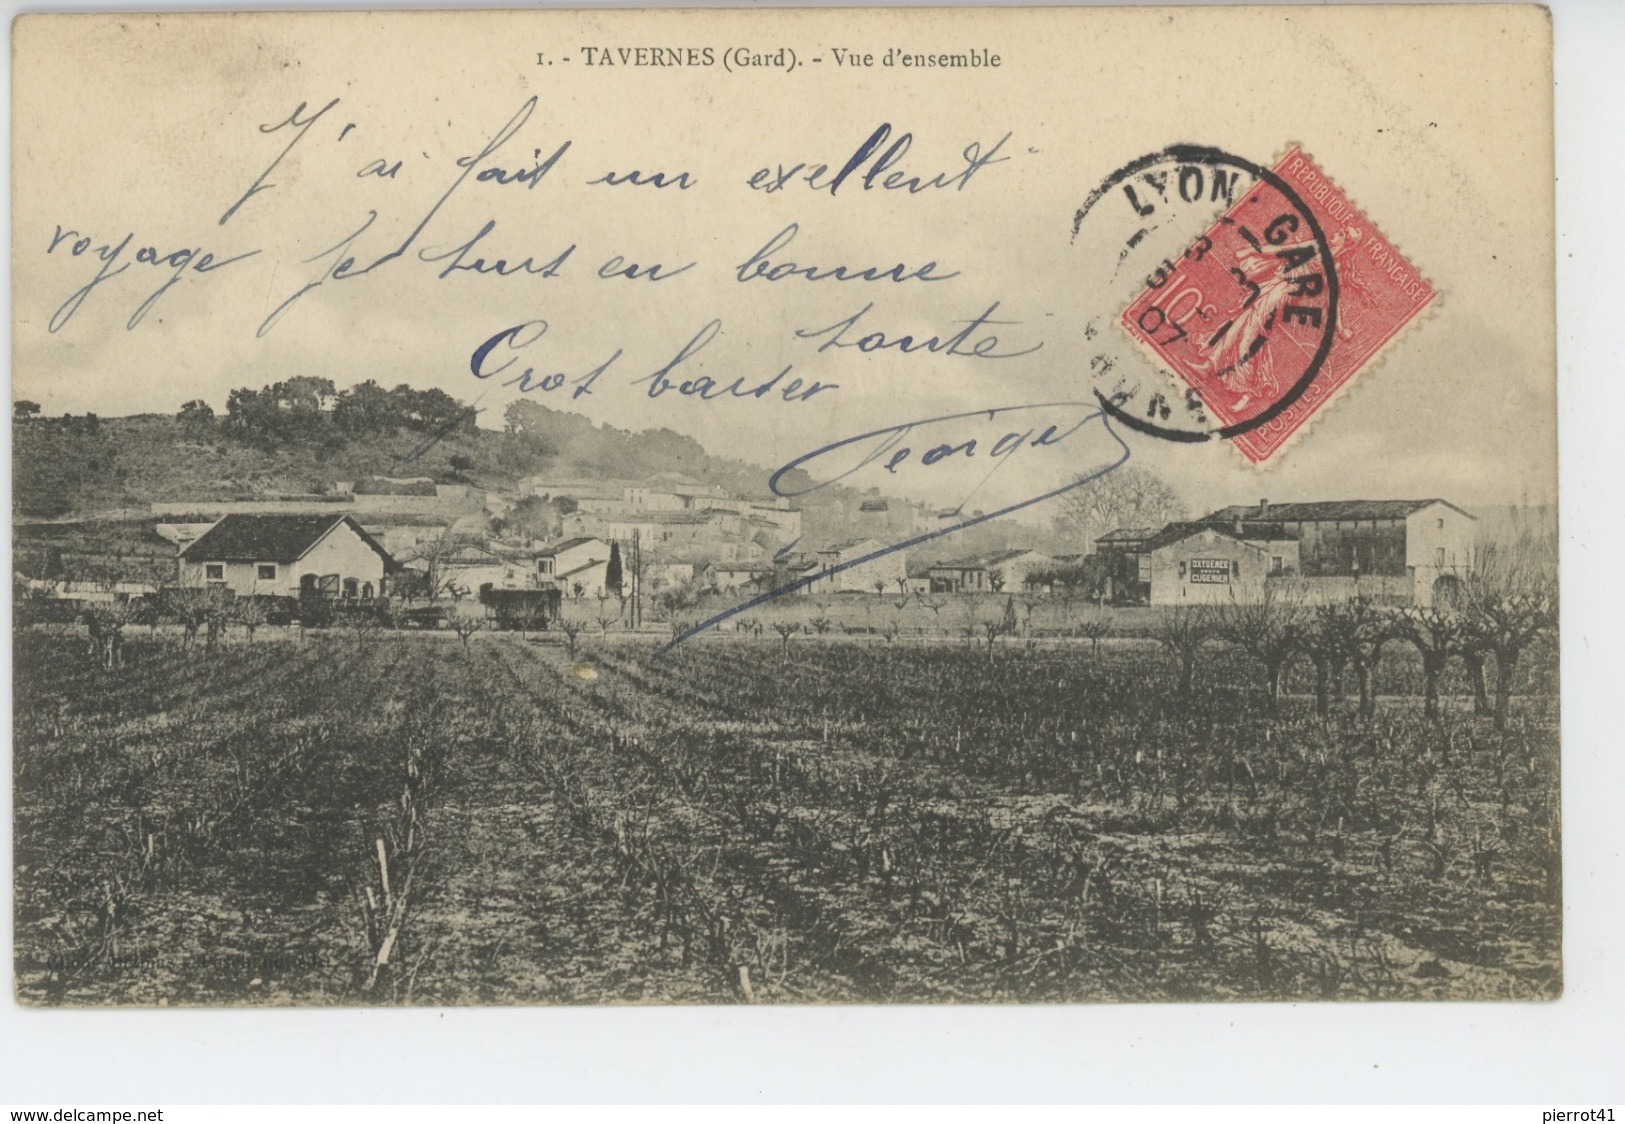 1. - TAVERNES (Gard). - Vue d'ensemble
J'ai fait un exellent
voyage Je suis en bonne
sante
Gros baiser
Georges
REPUBLIQUE FRANÇAISE
10c
POSTES
LYON-GARE
07
OXYGENEE
CUSENIER
www.delcampe.net
pierrot41